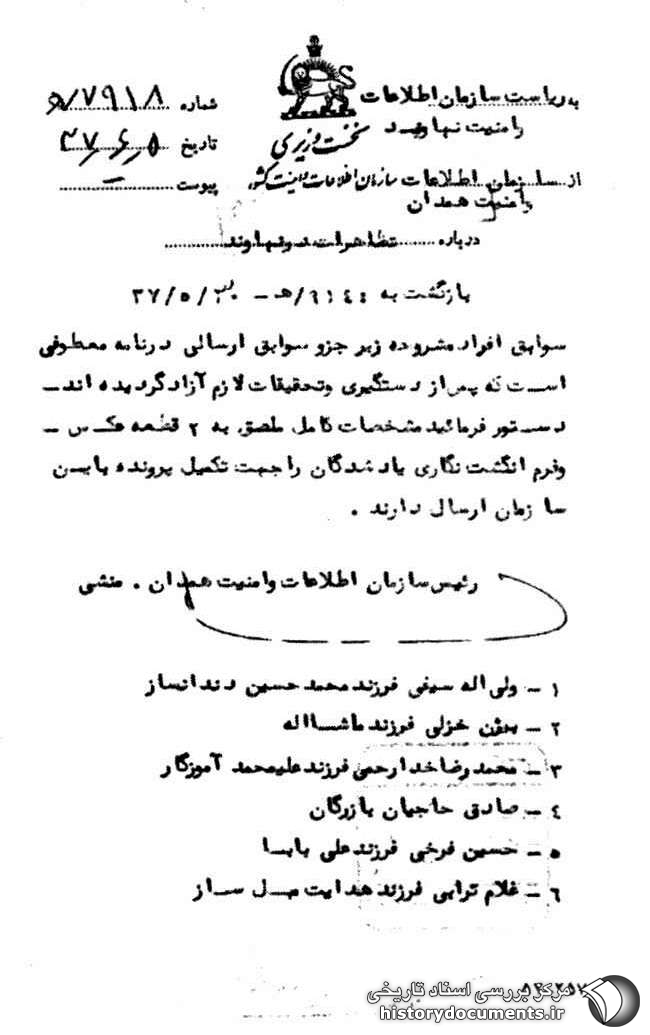 به ریاست سازمان اطلاعات
و امنیت نهاوند
شماره ۵/۷۹۱۸
نخست وزیری
تاریخ ۳۷/۶/۵
از سازمان اطلاعات سازمان اطلاعات و امنیت کشور
و امنیت همدان
پیوست –
درباره تظاهرات در نهاوند
بازگشت به ۶۱۴۰/هـ – ۳۰/۵/۳۷
سوابق افراد مشروده زیر جزو سوابق ارسالی در نامه معطوفی
است که پس از دستگیری و تحقیقات لازم آزاد گردیده اند –
دستور فرمائید مشخصات کامل ملصق به ۲ قطعه عکس –
و فرم انگشت نگاری یاد شدگان را جهت تکمیل پرونده باین
سازمان ارسال دارند .
رئیس سازمان اطلاعات و امنیت همدان . منشی
۱ – ولی اله سیفی فرزند محمد حسین دندانساز
۲ – بیژن خزلی فرزند ماشااله
۳ – محمد رضا خدارحمی فرزند علیمحمد آموزگار
۴ – صادق حاجیان بازرگان
۵ – حسین فرخی فرزند علی بابا
۶ – غلام ترابی فرزند هدایت مبل ساز
مرکز بررسی اسناد تاریخی
historydocuments.ir